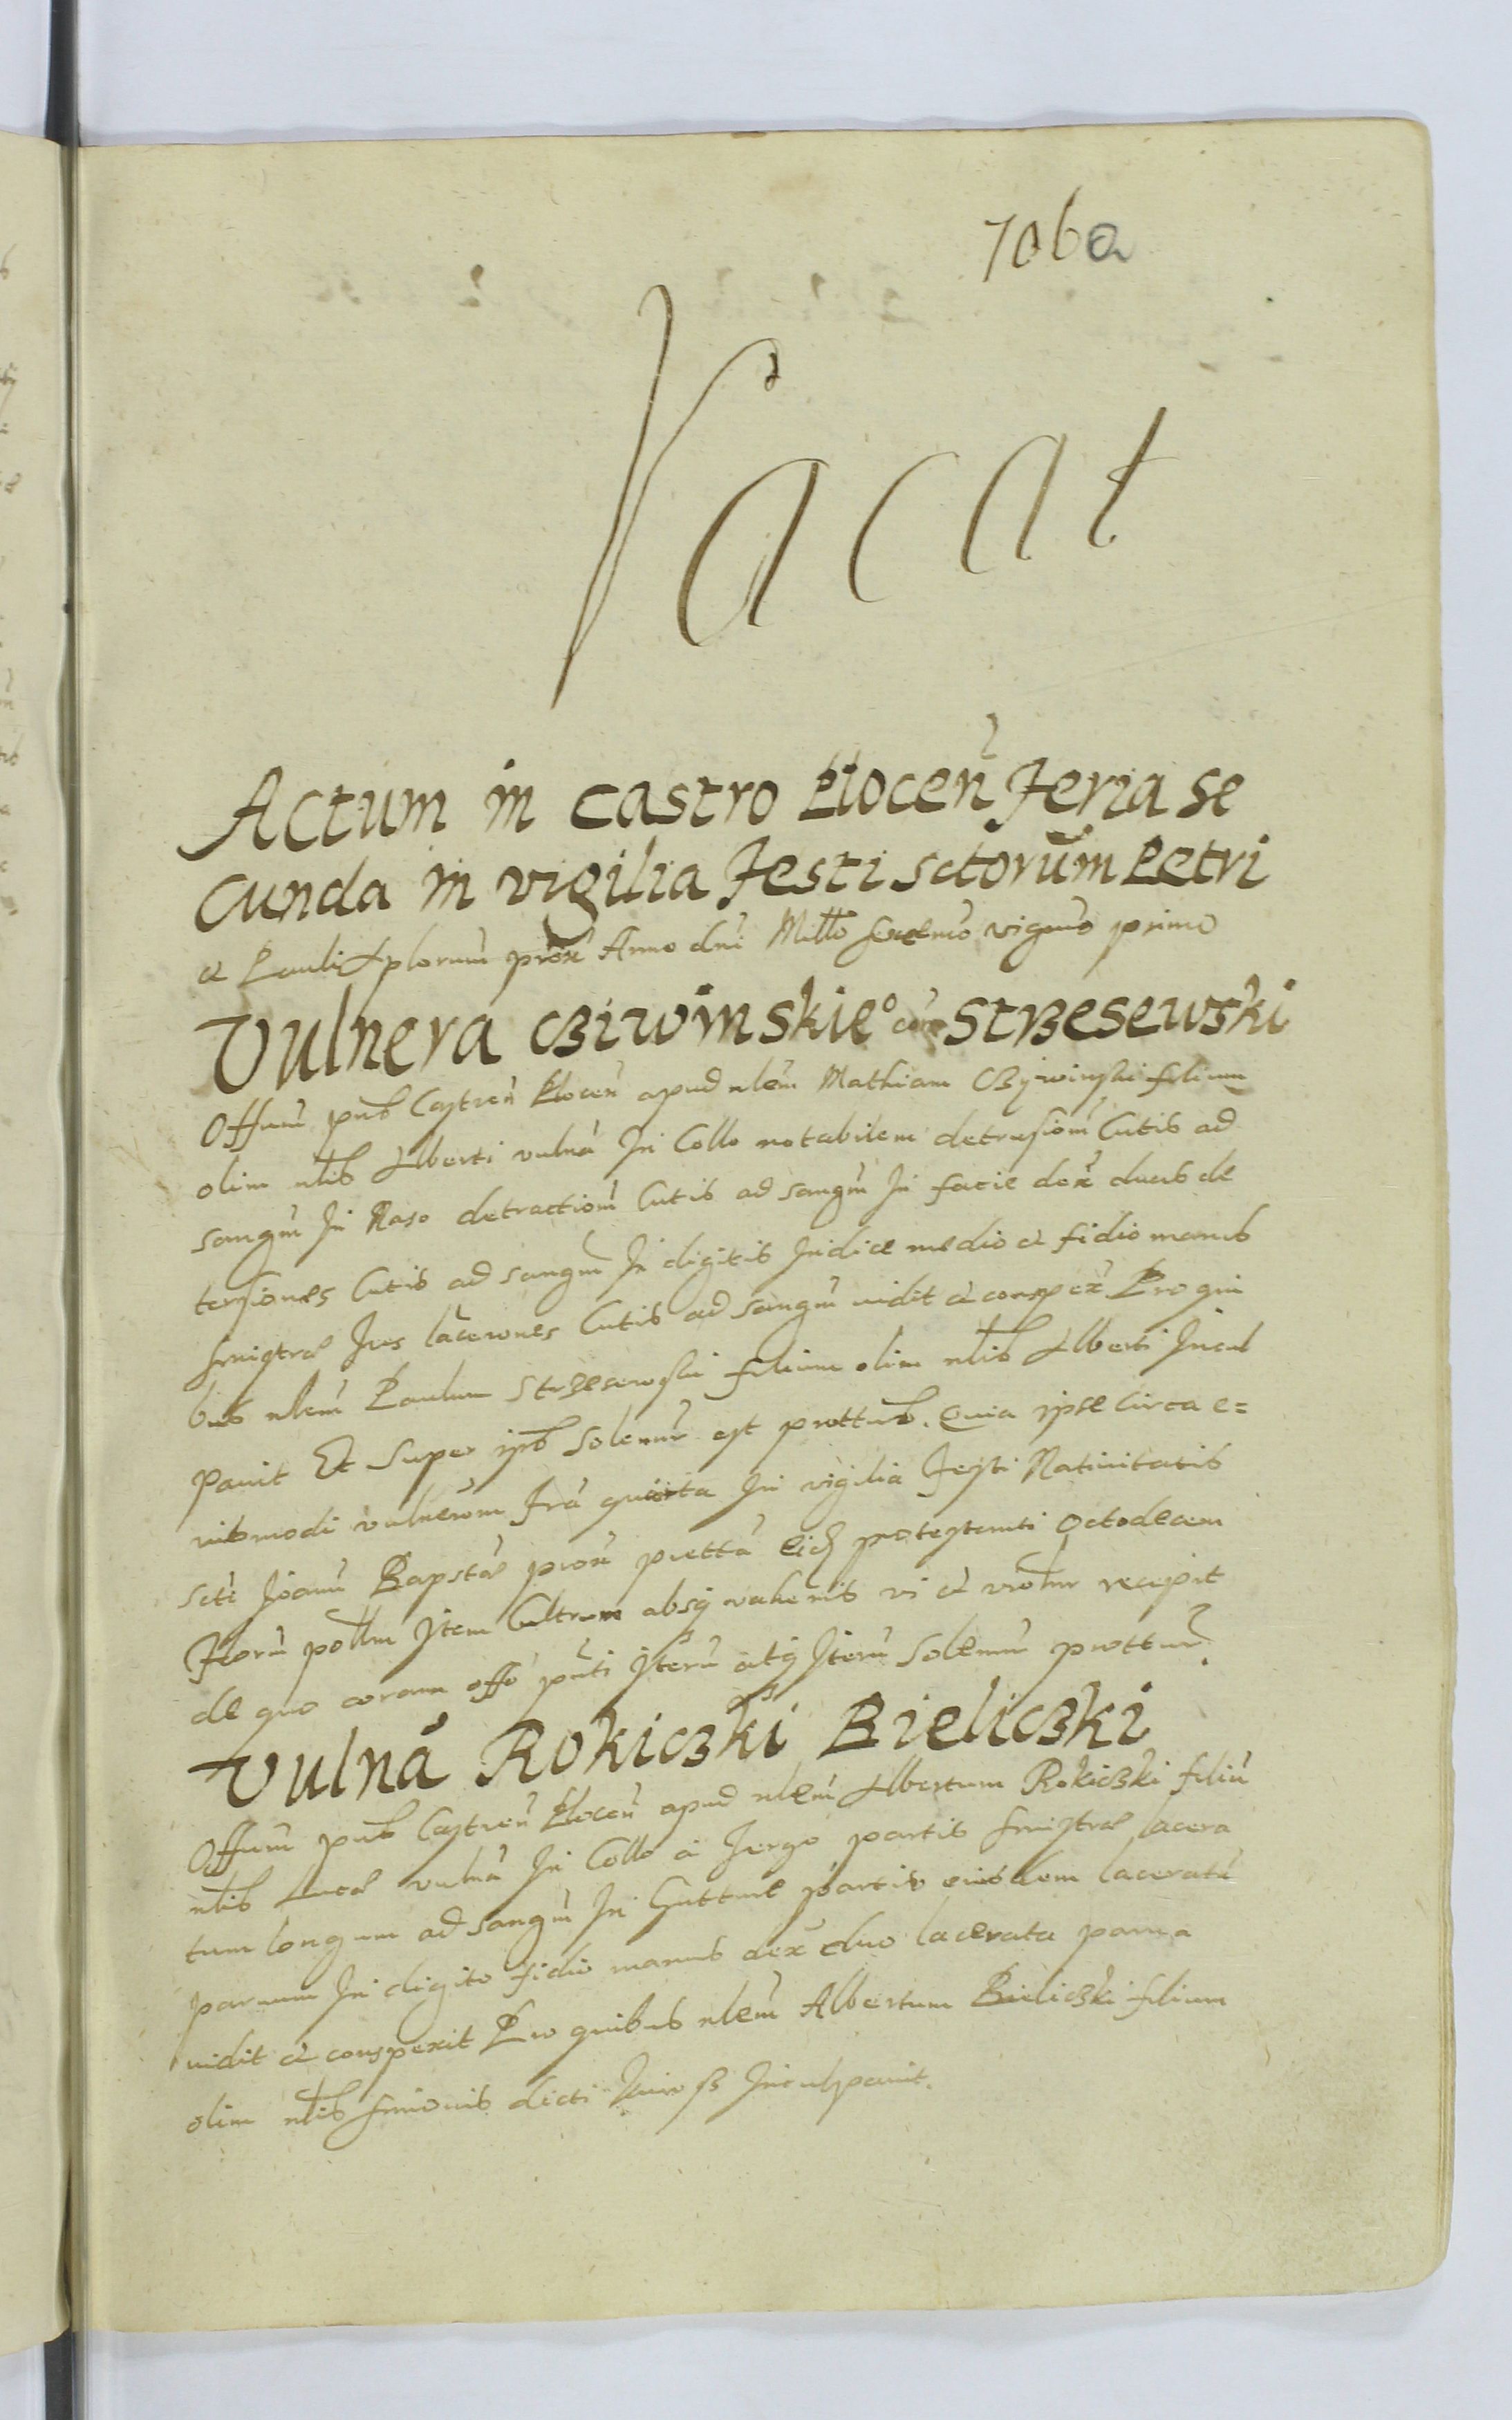 706a
Vacat
Actum in castro Plocen̄ Feria se
cunda in vigilia Festi sctorūm Petri
et Pauli Aplorum prox̄ Anno dni Millo sexcmo vigmo primo
Vulnera Cziwinskieº cum Strzesewski
Offum pns Castren̄ Plocen̄ apud nlem̄ Mathiam Czywinski filium
olim nlis Alberti vulna In Collo notabilem detrusiom̄ Cutis ad
sangm̄ In Naso detractiom̄ Cutis ad sangm̄ In facie dex̄ duas de
tersiones Cutis ad sangm̄ In digitis Indice medio et fidio manus
sinistræ tres laceraones Cutis ad sangm̄ vidit et conspex̄ Pro qui
bus nlem̄ Paulum Strzesewski filium olim nlis Alberti Incul
pavit Et Super ipso Solenr̄ est prottus. Quia ipse circa e=
iusmodi vulnerum In vigilia Festi Nativitatis
scti Joann̄ Bapstæ prox̄ prettā eidq protestanti Octodecem
Florū pollm Item Cultrum absq valenis vi et violnr recepit
de quo coram offo pn̄ti Iterū atq Iterū Solennr̄ prottur̄.
Vulnā Rokiczki Bieliczki
Offum pns Castren̄ Plocen̄ apud nlem̄ Albertum Rokiczki filiū
nlis Lucæ vulnā In Collo a Tergo partis sinistræ lacera
tum longum ad sangm̄ In Gutture partis eiusdem laceratū
parvum In digito fidio manus dex̄ duo lacerata parva
vidit et conspexit Pro quibus nlem̄ Albertum Bieliczki filium
olim nlis Simonis dicti Inculpavit.